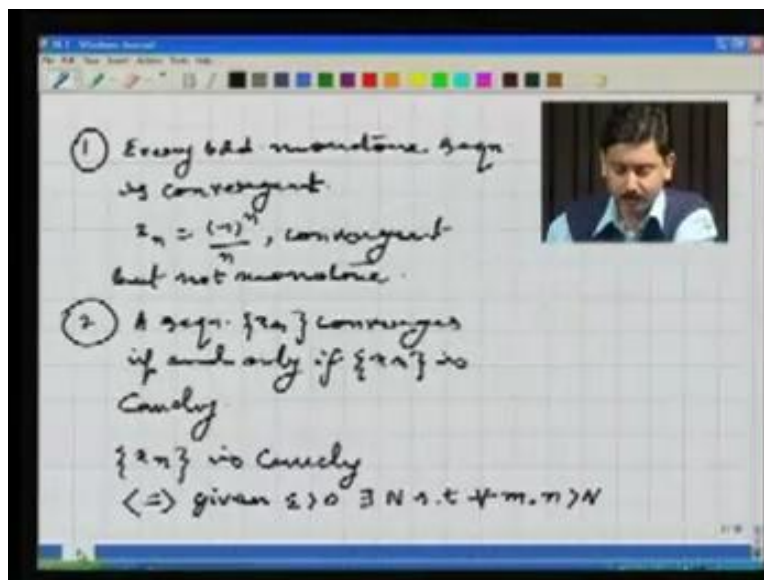 Windows Journal
① Every bdd. monotone seqn
is convergent.
xₙ = (-1)ⁿ/n, convergent
but not monotone.
② A seqn. {xₙ} converges
if and only if {xₙ} is
Cauchy
{xₙ} is Cauchy
<=> given ε>0 ∃ N s.t ∀ m,n>N